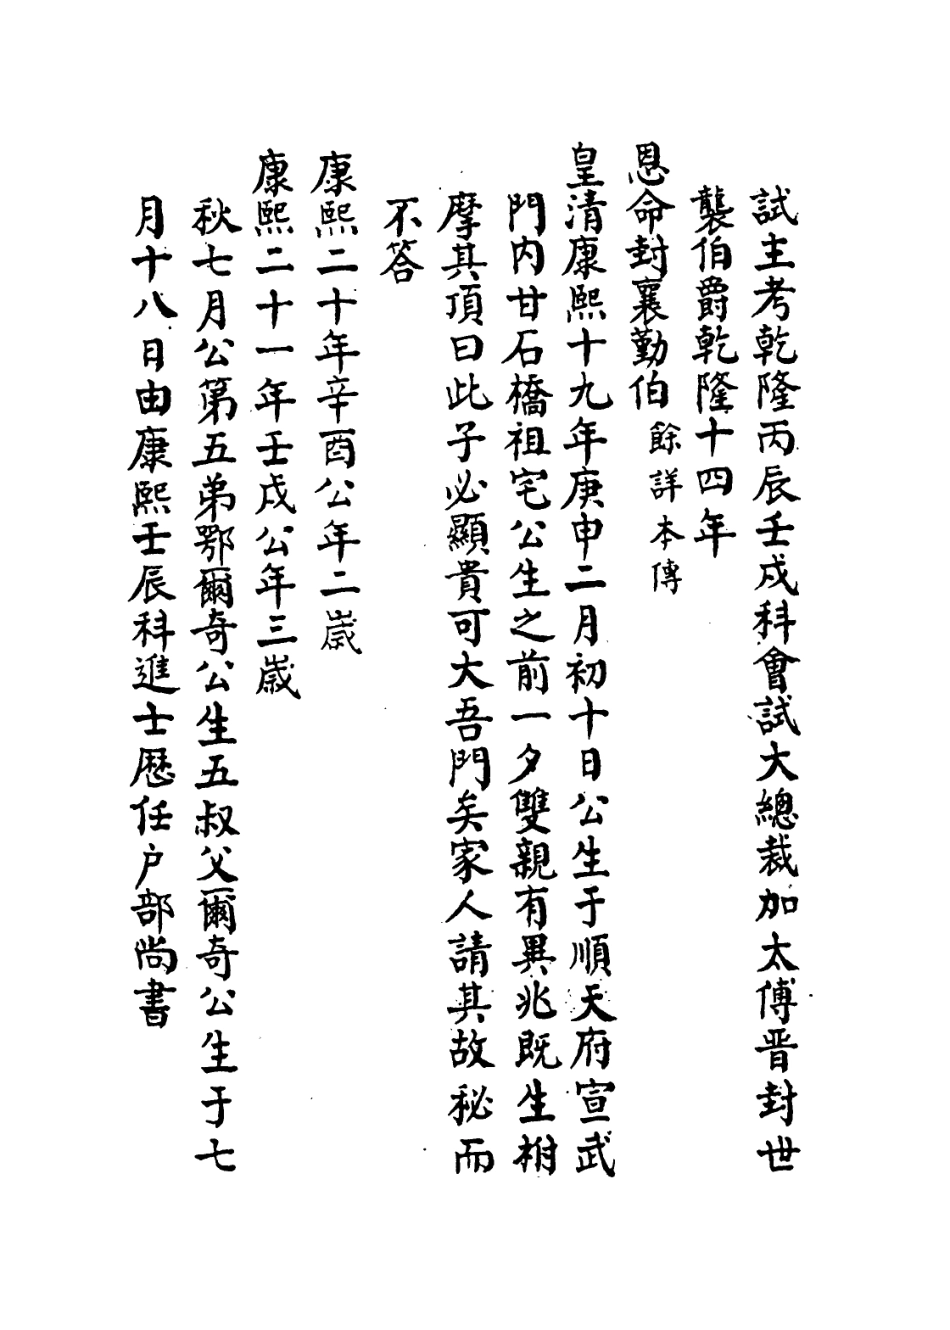 試主考乾隆丙辰壬戍科會試大總裁加太傅晋封世
襲伯爵乾隆十四年
恩命封襄勤伯餘詳本傳
皇清康熙十九年庚申二月初十日公生于順天府宣武
門内甘石橋祖宅公生之前一夕雙親有異兆既生柎
摩其頂曰此子必顯貴可大吾門矣家人請其故秘而
不答
康熙二十年辛酉公年二歲
康熙二十一年壬戍公年三歲
秋七月公第五弟鄂爾奇公生五叔父爾奇公生于七
月十八日由康熙壬辰科進士歷任户部尚書